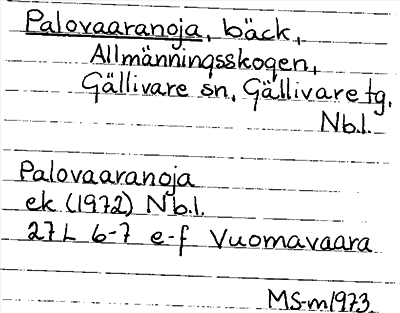 Palovaaranoja, bäck,
Allmänningsskogen,
Gällivare sn, Gällivare tg.
Nb.l.
Palovaaranoja
ek (1972) Nb.l.
27L 6-7 e-f Vuomavaara
MS-m1973